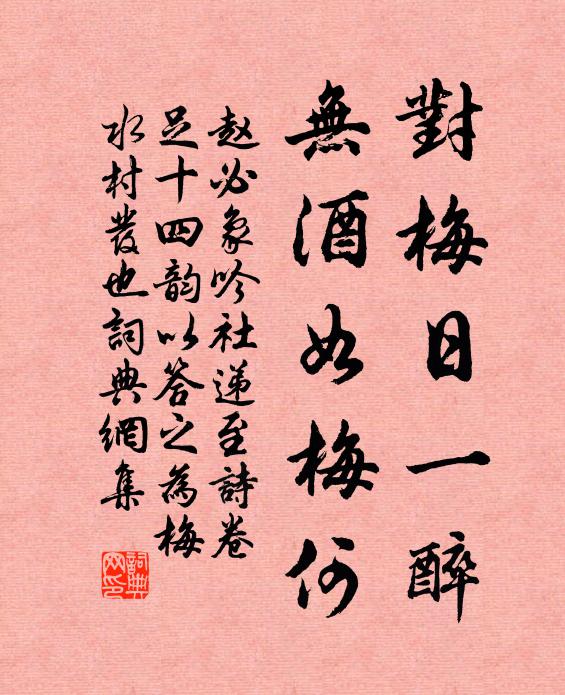 對梅日一醉
無酒如梅何
赵必象吟社递至詩卷
足十四韵以答之為梅
水村發也詞典網集
詞典
网印